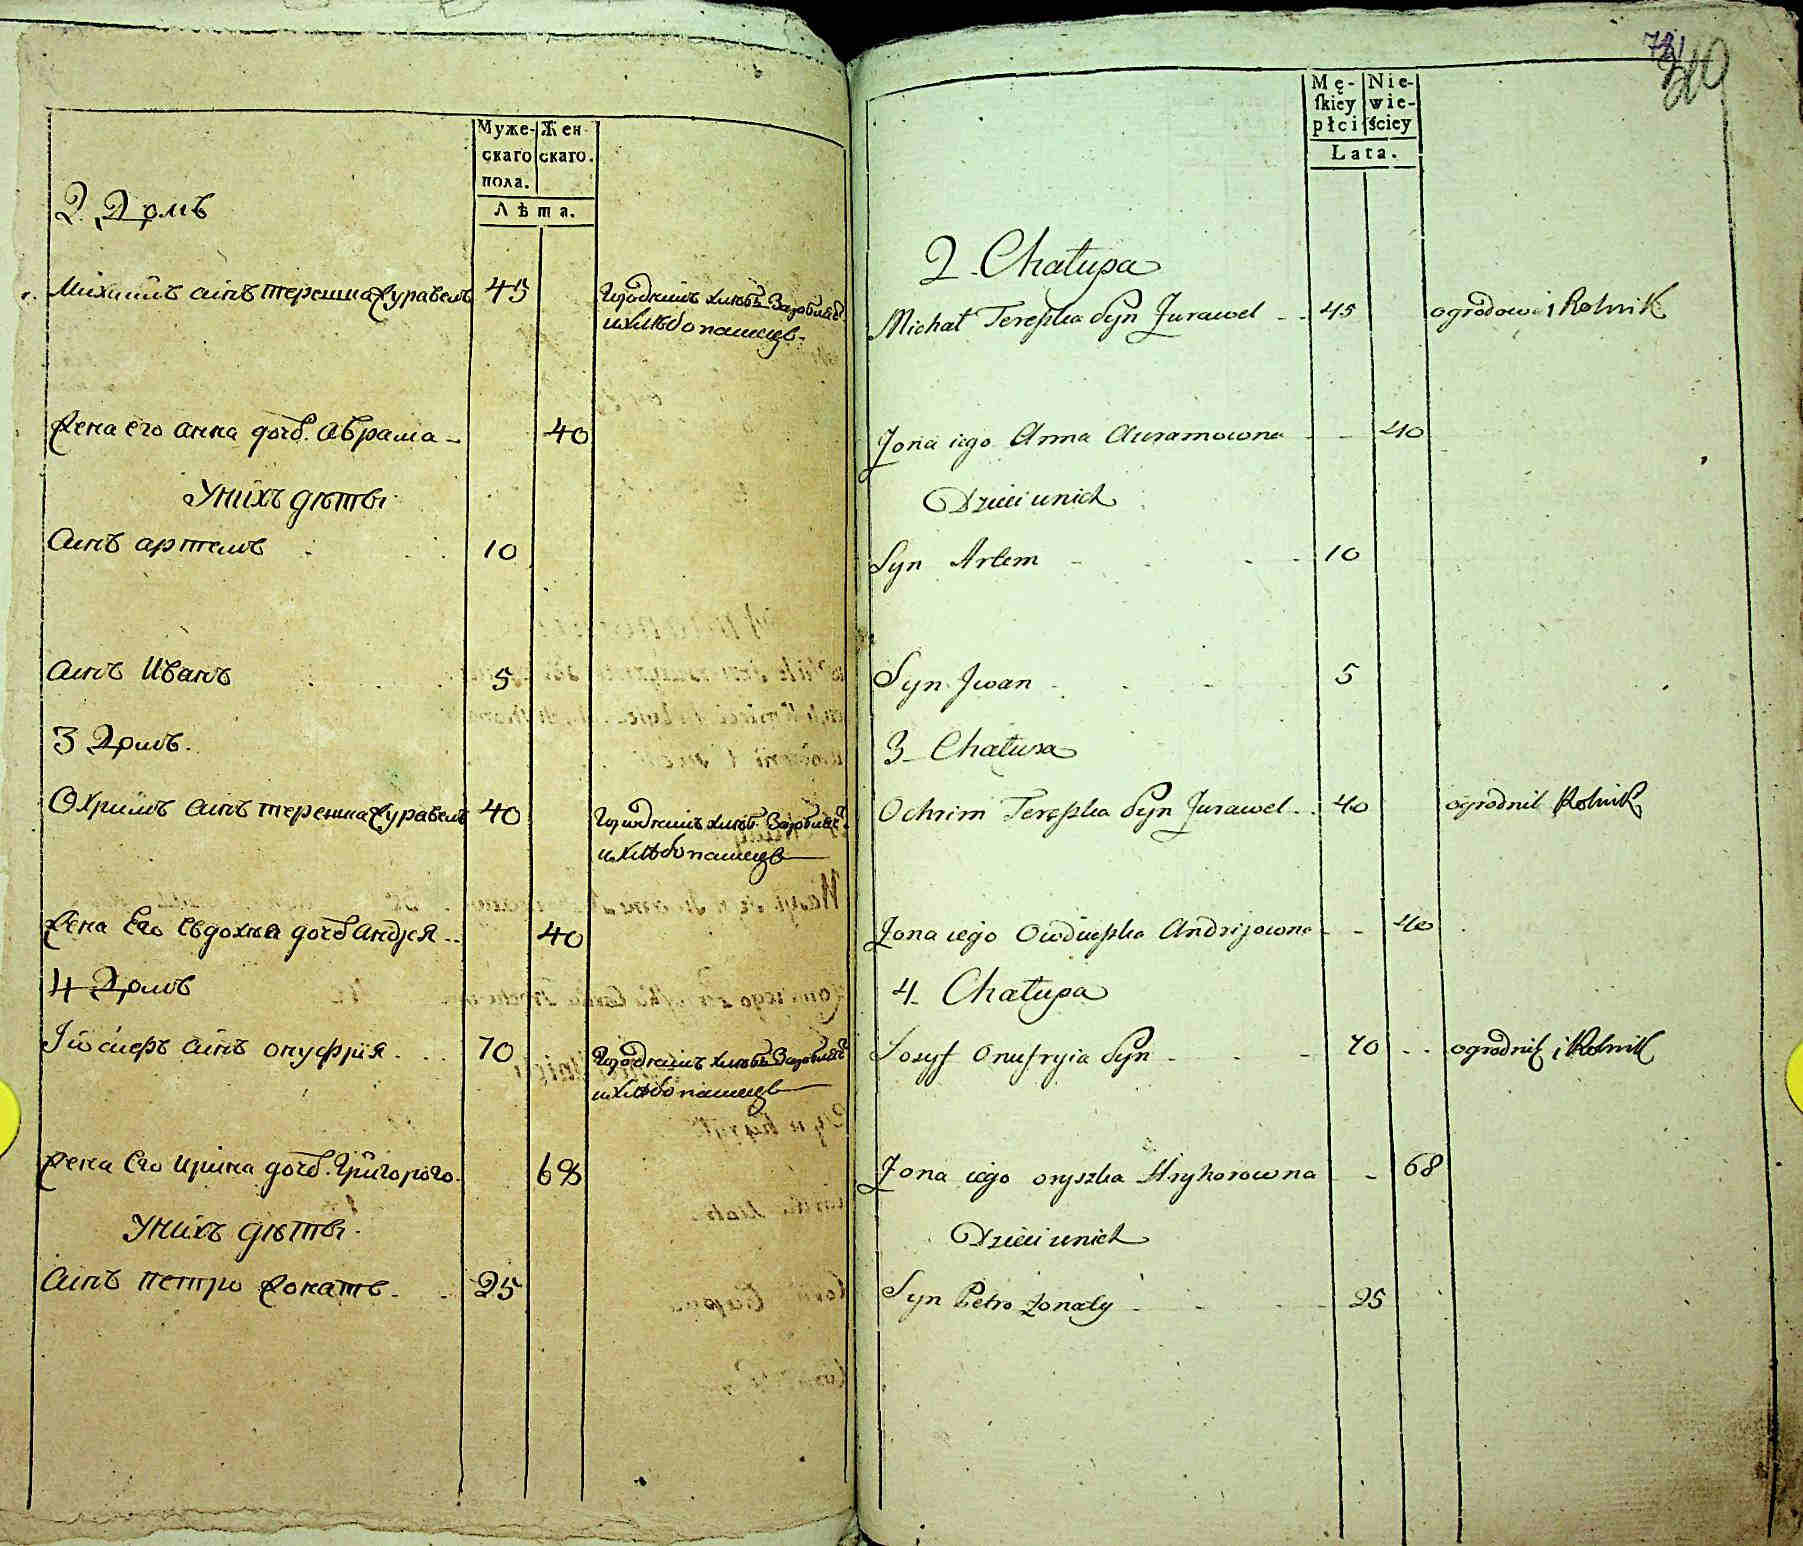 Муже- Жен
скаго скаго.
пола.
Лѣта.
2 Домъ
Михайлъ синъ терешка Журавель 45
и хлѣбопашецъ
Жена его анна дочь. Абрама 40
Унихъ дѣти
Синъ артемъ 10
синъ Иванъ 5
3 Домъ.
Охримъ синъ терешка Журавель 40
и хлѣбопашецъ
Жена Его Евдохиа дочь Андрея 40
4 Домъ
Іосифъ синъ онуфрия 70
и хлѣбопашецъ
Жена Его ирина дочь. Григорого 68
Унихъ дѣти.
Синъ петро Жонатъ 25
310
Mę- Nie-
ſkiey wie-
płci ściey
Lata.
2 Chałupa
Michał Tereszka Syn Zurawel 45 ogrodowy i Rolnik
Zona iego Anna Auramowna 40
Dzieci unich
Syn Artem 10
Syn Jwan 5
3 Chałupa
Ochrim Tereszka Syn Zurawel 40 ogrodnik Rolnik
Zona iego Owdieszka Andrijowna 40
4 Chałupa
Josyf Onufryia Syn 70 ogrodnik i Rolnik
Zona iego oryszka Hryhorowna 68
Dzieci unich
Syn Petro Zonaty 25